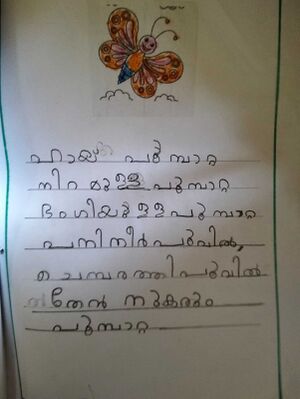 ഹായ് പൂമ്പാറ്റ
നിറമുള്ള പൂമ്പാറ്റ
ഭംഗിയുള്ള പൂമ്പാറ്റ
പനിനീർ പൂവിൽ,
ചെമ്പരത്തി പൂവിൽ
തേൻ നുകരും
പൂമ്പാറ്റ